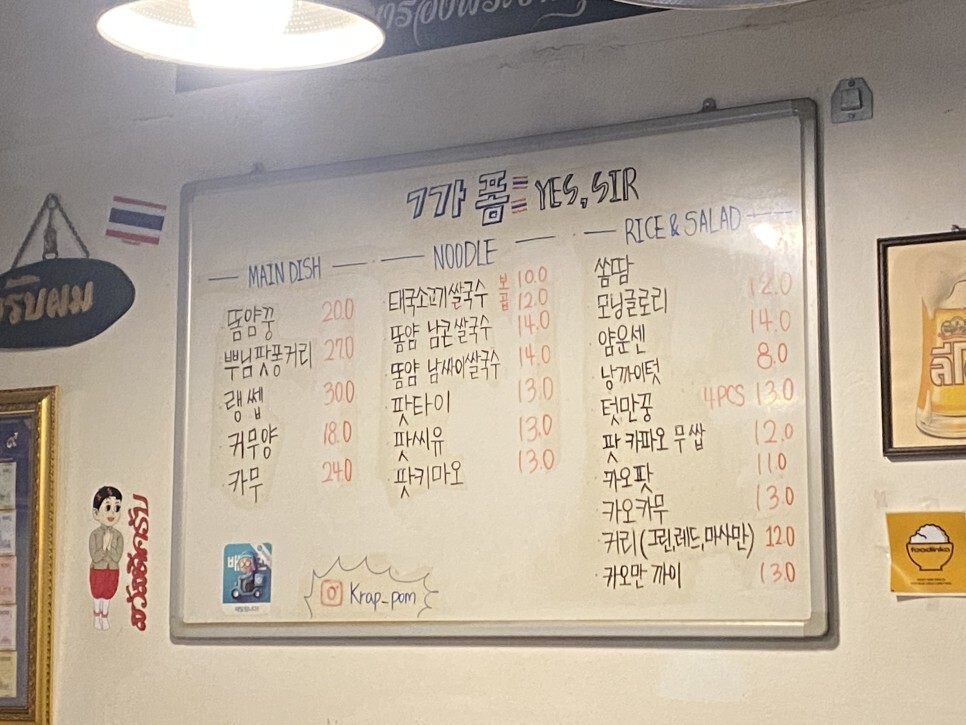 폼 YES, SIR
MAIN DISH
똠얌꿍 20.0
뿌님팟퐁커리 27.0
랭쎕 30.0
커무양 18.0
카무 24.0
NOODLE
태국소고기쌀국수 보 10.0
곱 12.0
똠얌 남콘쌀국수 14.0
똠얌 남싸이쌀국수 14.0
팟타이 13.0
팟씨유 13.0
팟키마오 13.0
RICE & SALAD
쏨땀
모닝글로리 12.0
얌운센 14.0
낭까이텃 8.0
텃만꿍 4PCS 13.0
팟 카파오 무쌉 12.0
카오팟 11.0
카오카무 13.0
커리 (그린,레드,마사만) 12.0
카오만 까이 13.0
Krap_pom
รับผม
foodlinko